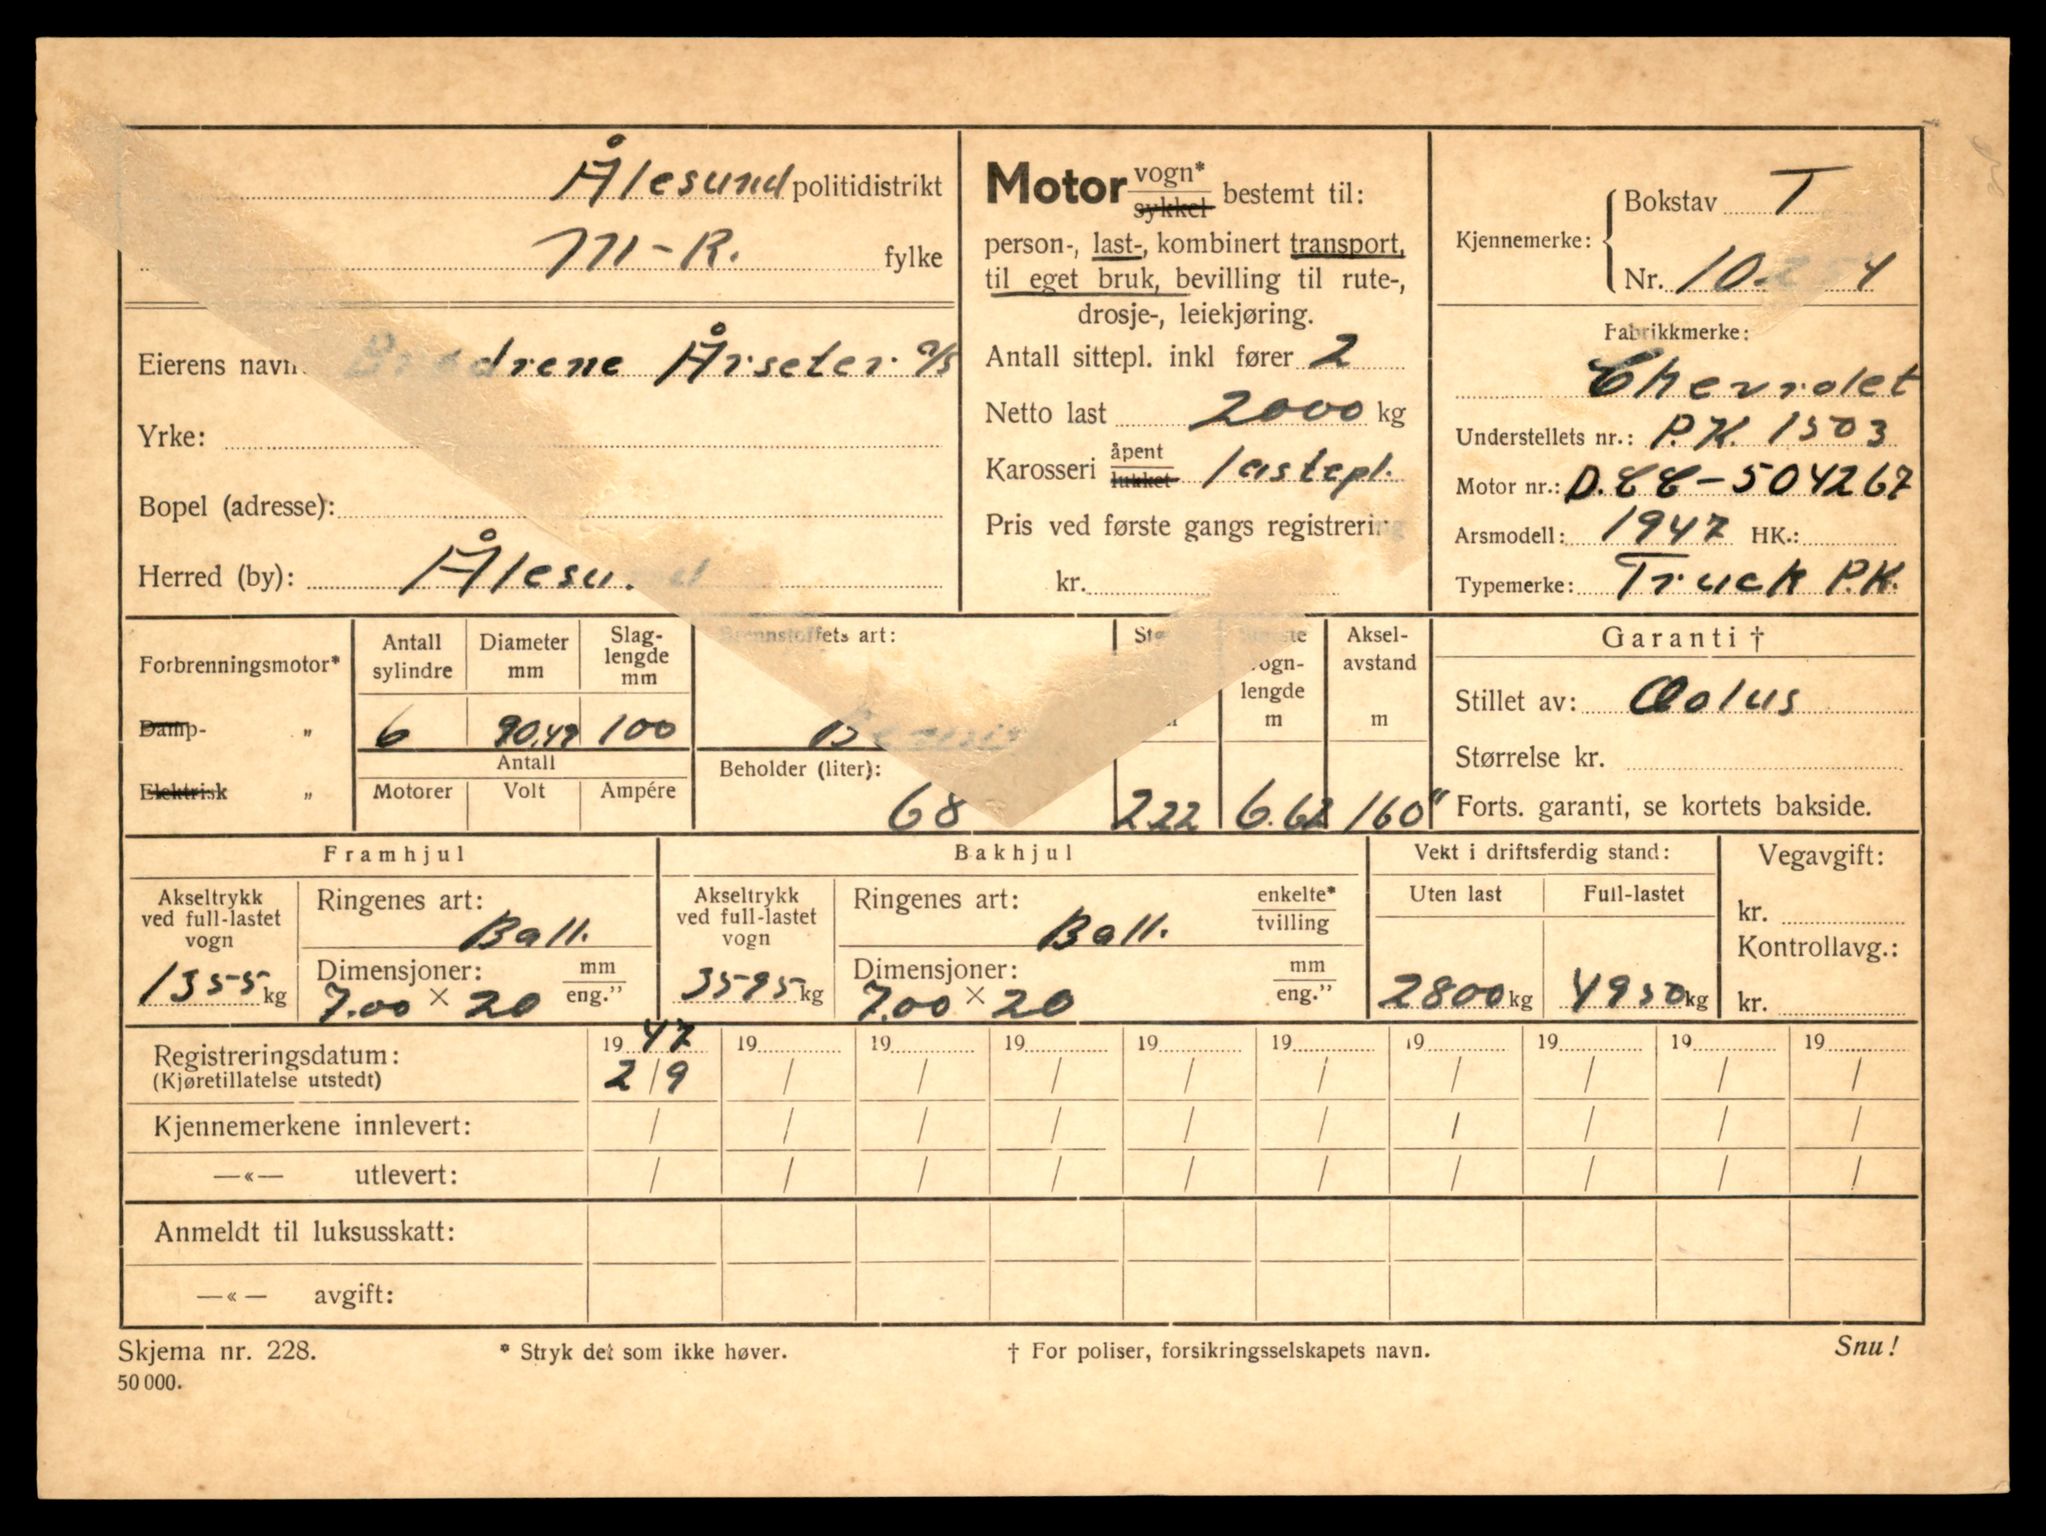 Ålesund politidistrikt
M-R. fylke
Eierens navn Brødrene Årseter A/S
Yrke:
Bopel (adresse):
Herred (by): Ålesund
Motor vogn* sykkel bestemt til:
person-, last-, kombinert transport,
til eget bruk, bevilling til rute-,
drosje-, leiekjøring.
Antall sittepl. inkl fører 2
Netto last 2000 kg
Karosseri åpent lukket lastepl.
Pris ved første gangs registrering
kr.
Kjennemerke: Bokstav T
Nr. 10254
Fabrikkmerke:
Chevrolet
Understellets nr.: P.K. 1503
Motor nr.: D.CC-504267
Arsmodell: 1947 HK.:
Typemerke: Truck P.K.
Forbrenningsmotor*
Damp- „
Elektrisk „
Antall sylindre 6
Diameter mm 90.49
Slag-lengde mm 100
Antall
Motorer Volt Ampére
Brennstoffets art:
Bensin
Beholder (liter):
68
222
vogn-
lengde
m
6.62
Aksel-
avstand
m
160"
Garanti †
Stillet av: Æolus
Størrelse kr.
Forts. garanti, se kortets bakside.
Framhjul
Akseltrykk
ved full-lastet
vogn
1355 kg
Ringenes art:
Ball.
Dimensjoner: mm eng."
7.00 × 20
Bakhjul
Akseltrykk
ved full-lastet
vogn
3595 kg
Ringenes art: enkelte* tvilling
Ball.
Dimensjoner: mm eng."
7.00 × 20
Vekt i driftsferdig stand:
Uten last Full-lastet
2800 kg 4950 kg
Vegavgift:
kr.
Kontrollavg.:
kr.
Registreringsdatum: 1947 19 19 19 19 19 19 19 19 19
(Kjøretillatelse utstedt) 2/9 / / / / / / / / /
Kjennemerkene innlevert: / / / / / / / / / /
—«— utlevert: / / / / / / / / / /
Anmeldt til luksusskatt:
—«— avgift:
Skjema nr. 228. * Stryk det som ikke høver. † For poliser, forsikringsselskapets navn. Snu!
50 000.